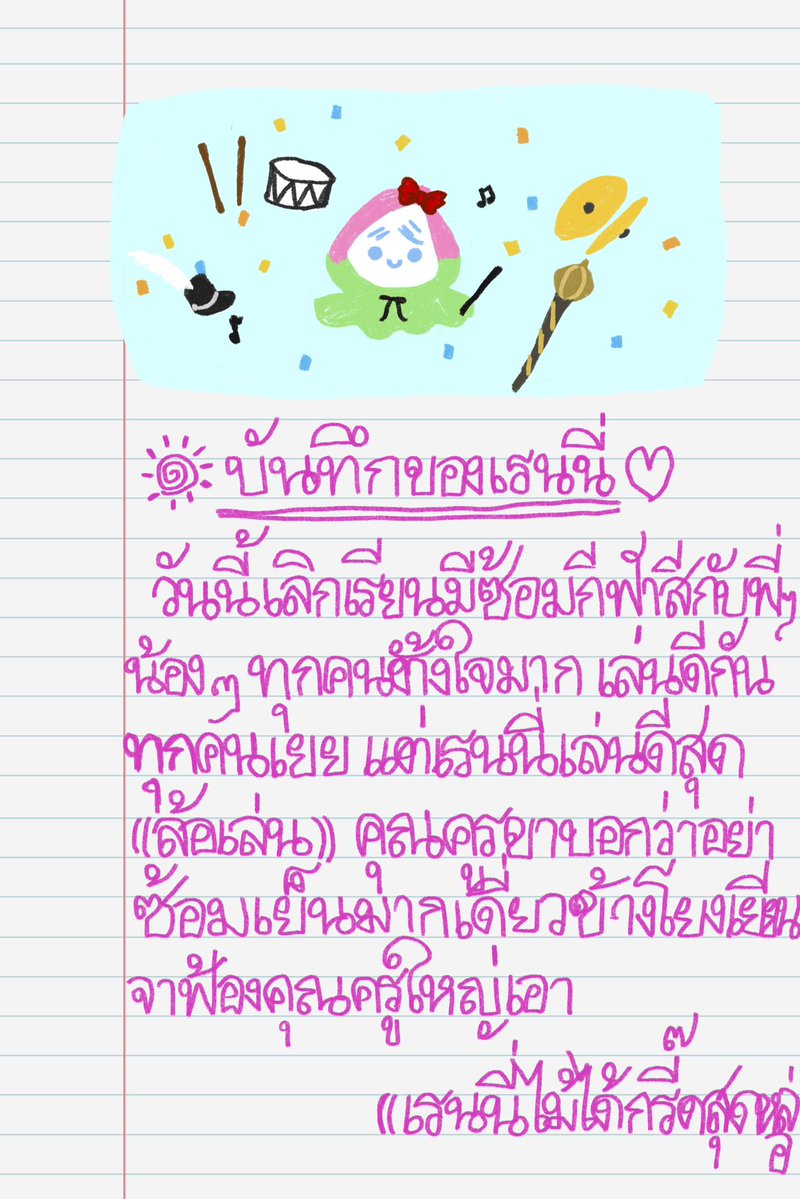 บันทึกของเรนนี่
วันนี้เลิกเรียนมีซ้อมกีฬาสีกับพี่ๆ
น้องๆ ทุกคนตั้งใจมาก เล่นดีกัน
ทุกคนเยย แต่เรนนี่เล่นดีสุด
((ล้อเล่น)) คุณครูขาบอกว่าอย่า
ซ้อมเย็นมากเดี๋ยวข้างโยงเยียน
จาฟ้องคุณครูใหญ่เอา
((เรนนี่ไม่ได้กรี๊ดสุดหล่อ